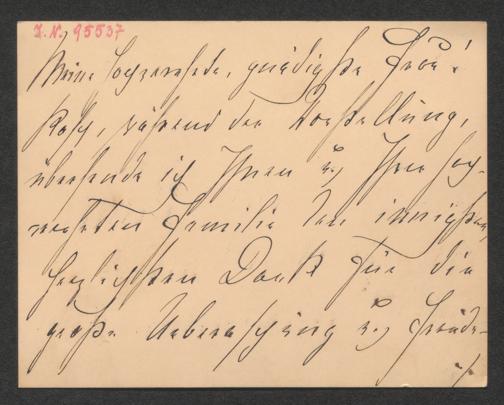 I. N. 95537
Meine hochverehrte, gnädigste Frau!
Rasch, während der Vorstellung,
übersende ich Ihnen u. Ihrer hoch-
verehrten Familie den innigsten,
herzlichsten Dank für die
große Ueberraschung u. Freude